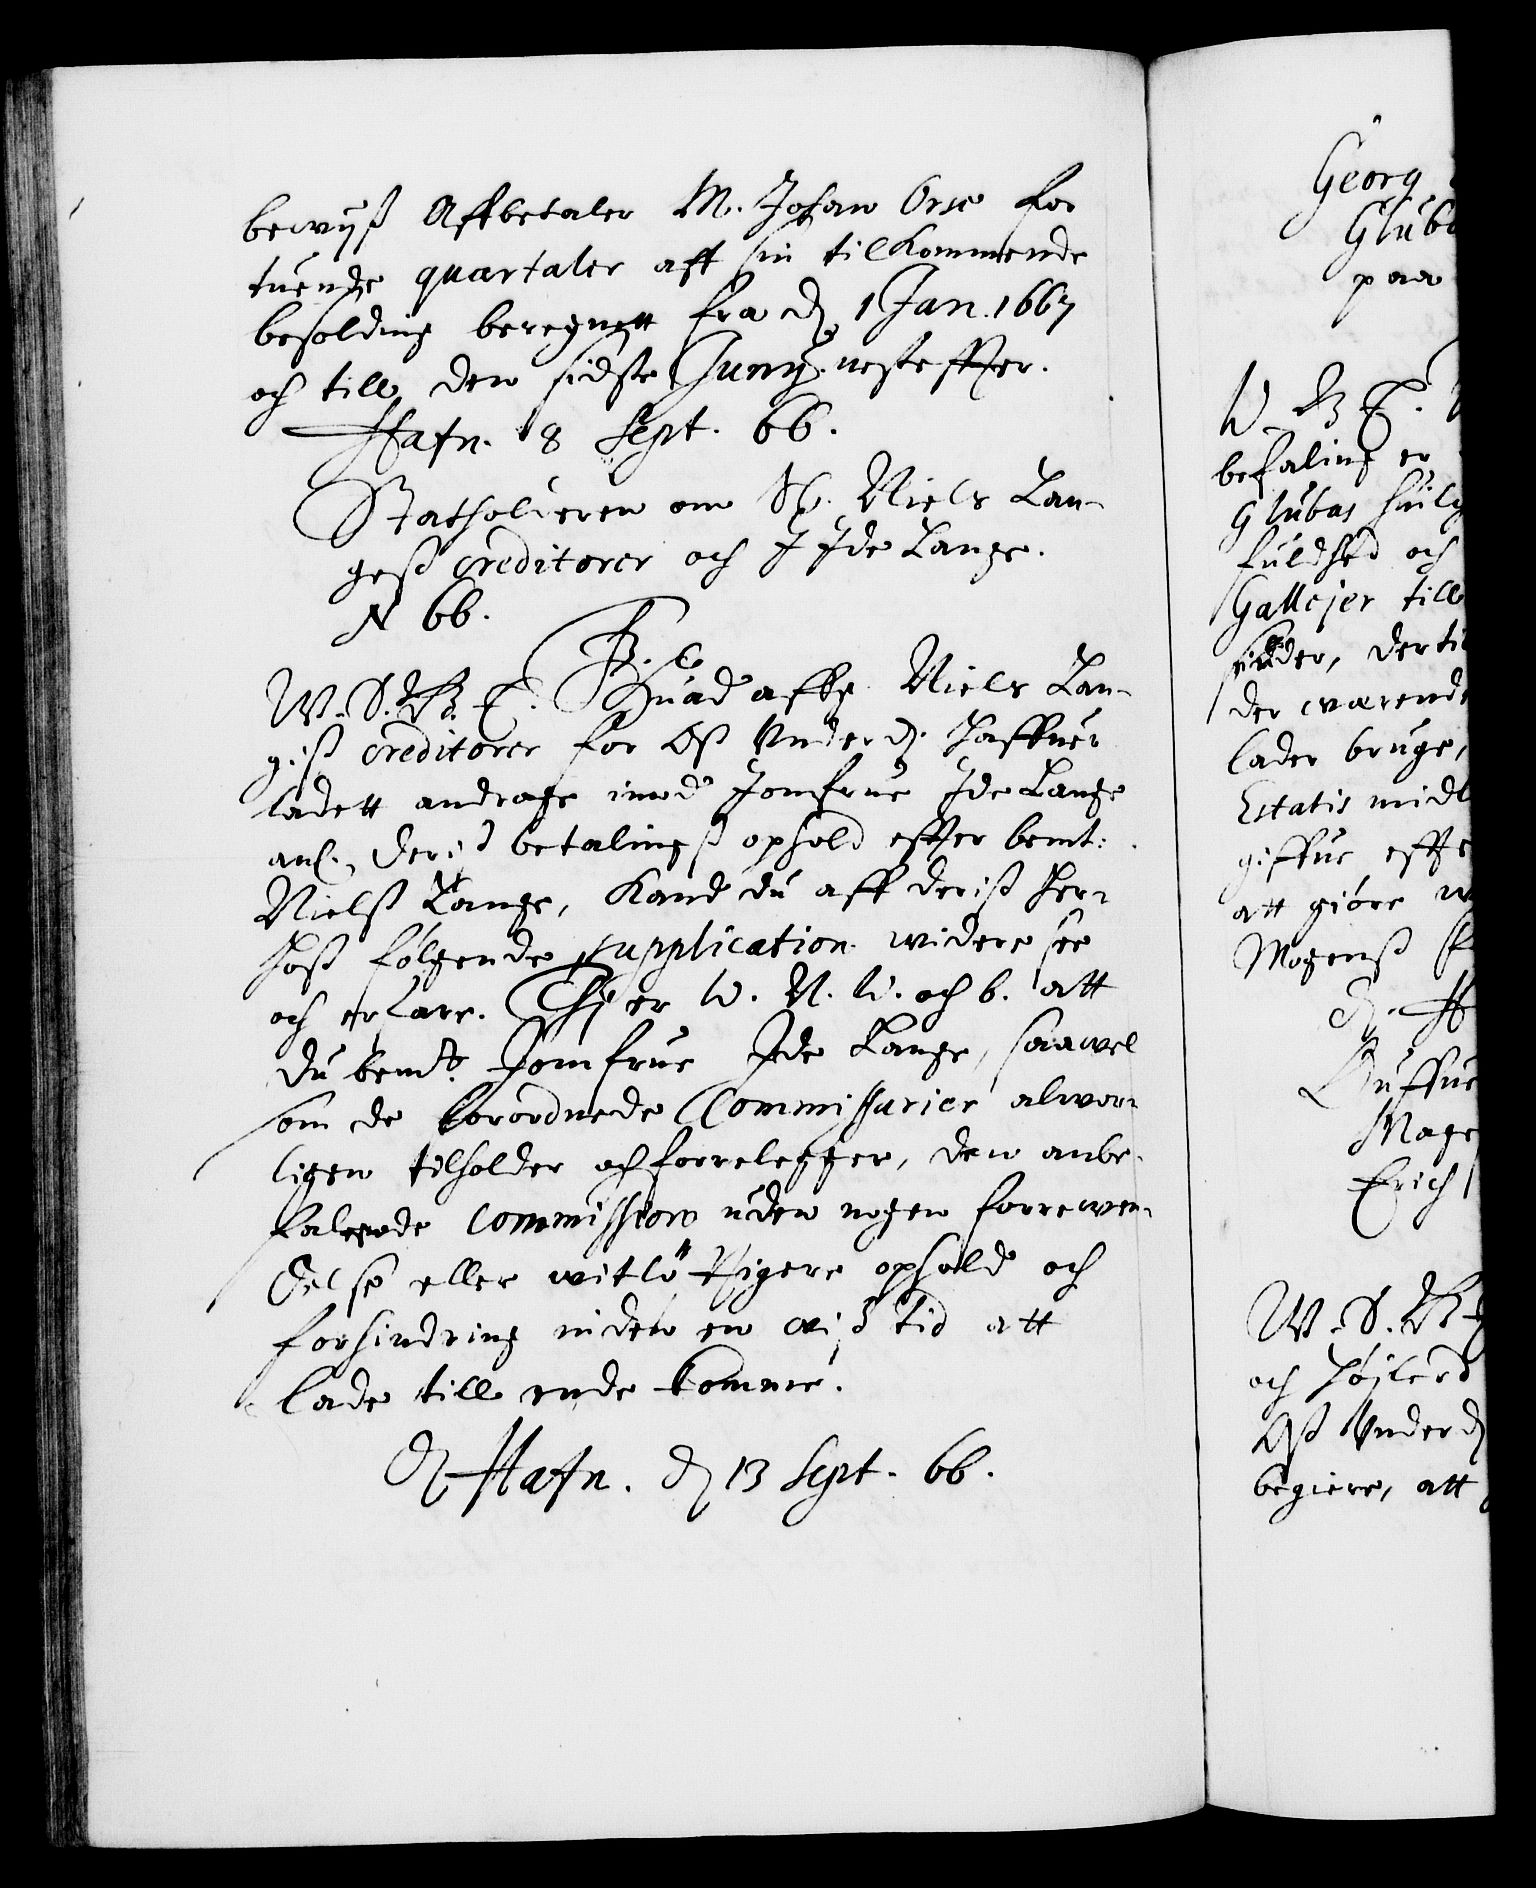 bewijß Affbetaler M. Johan Orse for
tuende quartaler aff sin tilkommende
besolding beregnett fra dn 1 Jan. 1667
och till den sidste Junij. nesteffter.
Hafn. 8 Sept. 66.
Statholderen om Sl. Niels Lan-
geß creditorer och J Ide Lange.
N 66.
W. S. G. T. Huad afg. Niels Lan-
giß creditorer for Oß Underdn. haffuer
ladett andrage imod Jomfrue Ide Lange
anl. deriß betalingß ophold effter bemt:
Nielß Lange, kand du aff deriß her-
hoß følgende supplication videre see
och erfare. Thi er W. N. W. och b. att
du bemt. Jomfrue Ide Lange, saawel
som de forordnede Commissarier alwor-
ligen tilholder och forrelegger, den anbe-
falede commission uden nogen forrewen-
delse eller witløfftigere ophold och
forhindring inden en wiß tid att
lade till ende komme.
Hafn. dn 13 Sept. 66.
Georg
Glub
paa
befaling er
Glubas huilc
fuldhed och
Gallejer till
der werende
lader bruge,
Estatis midl
giffue effte
att giøre w
Mogenß
Mage
Erich
W. S. G.
och højlerd
Oß Underdn
begiere, att